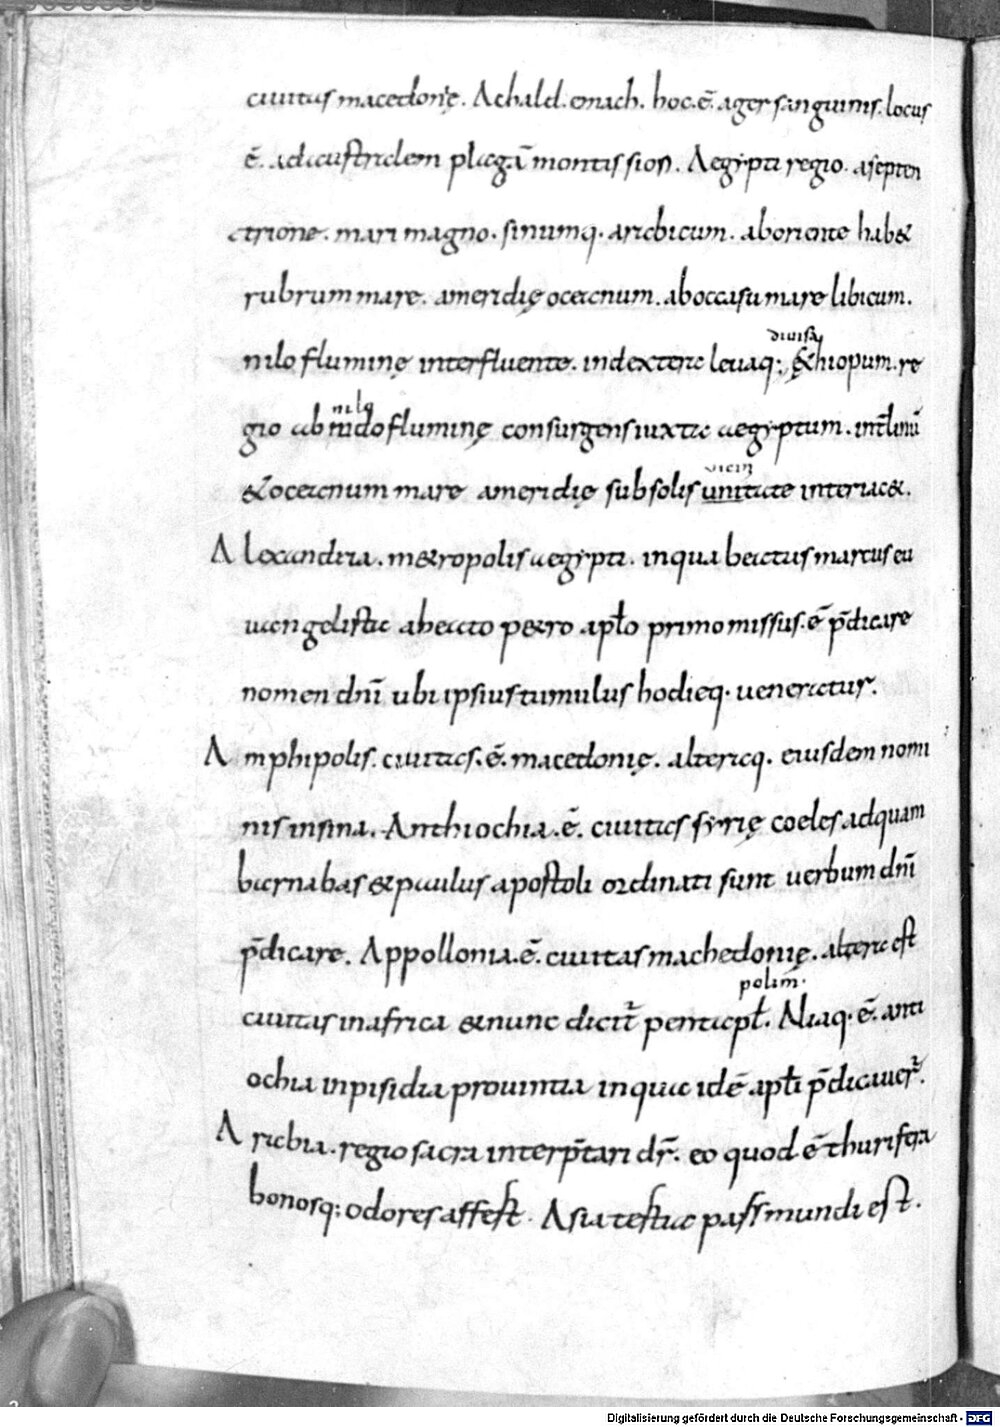 ciuitas macedonię. Acheld. emach. hoc. ē. ager sanguinis. locus
ē. ad australem plagā montis sion. Aegypti regio. a septen
trione. mari magno. sinumq. arabicum. ab oriente hab&
rubrum mare. a meridię oceanum. ab occasu mare libicum.
diuisa
nilo fluminę interfluente. in dextera leuaq; &hiopum. re
nilo
gio ab nido fluminę consurgens iuxta aegyptum. int libiū
uicin
& oceanum mare a meridię sub solis unitate interiac&.
Alexandria. m&ropolis aegypti. in qua beatus marcus eu
uangelista a beato p&ro aplo primo missus. ē p̄dicare
nomen dnī ubi ipsius tumulus hodieq. ueneratur.
Amphipolis. ciuitas. ē. macedonię. alteraq. eiusdem nomi
nis in sina. Anthiochia. ē. ciuitas syrię coeles ad quam
barnabas & paulus apostoli ordinati sunt uerbum dnī
p̄dicare. Appollonia. ē. ciuitas machedonię. altera est
polim.
ciuitas in africa & nunc dicit̄ pentapł. Aliaq. ē. anti
ochia in pisidia prouintia in qua idē apłi p̄dicauer̄.
Arabia. regio sacra interp̄tari dr̄. eo quod ē thurifera
bonosq; odores affest. Asia testiae pass mundi est.
Digitalisierung gefördert durch die Deutsche Forschungsgemeinschaft - DFG